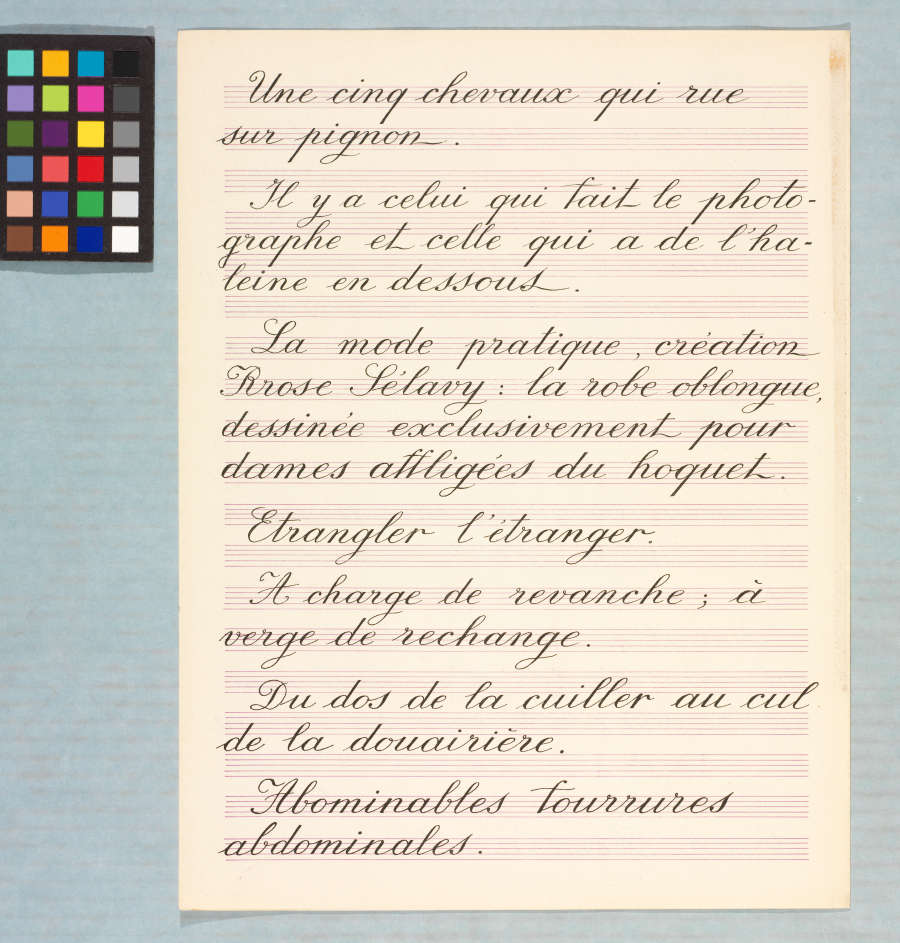 Une cinq chevaux qui rue
sur pignon.
Il y a celui qui fait le photo-
graphe et celle qui a de l'ha-
leine en dessous.
La mode pratique, création
Rrose Sélavy : la robe oblongue,
dessinée exclusivement pour
dames affligées du hoquet.
Etrangler l'étranger.
A charge de revanche ; à
verge de rechange.
Du dos de la cuiller au cul
de la douairière.
Abominables fourrures
abdominales.